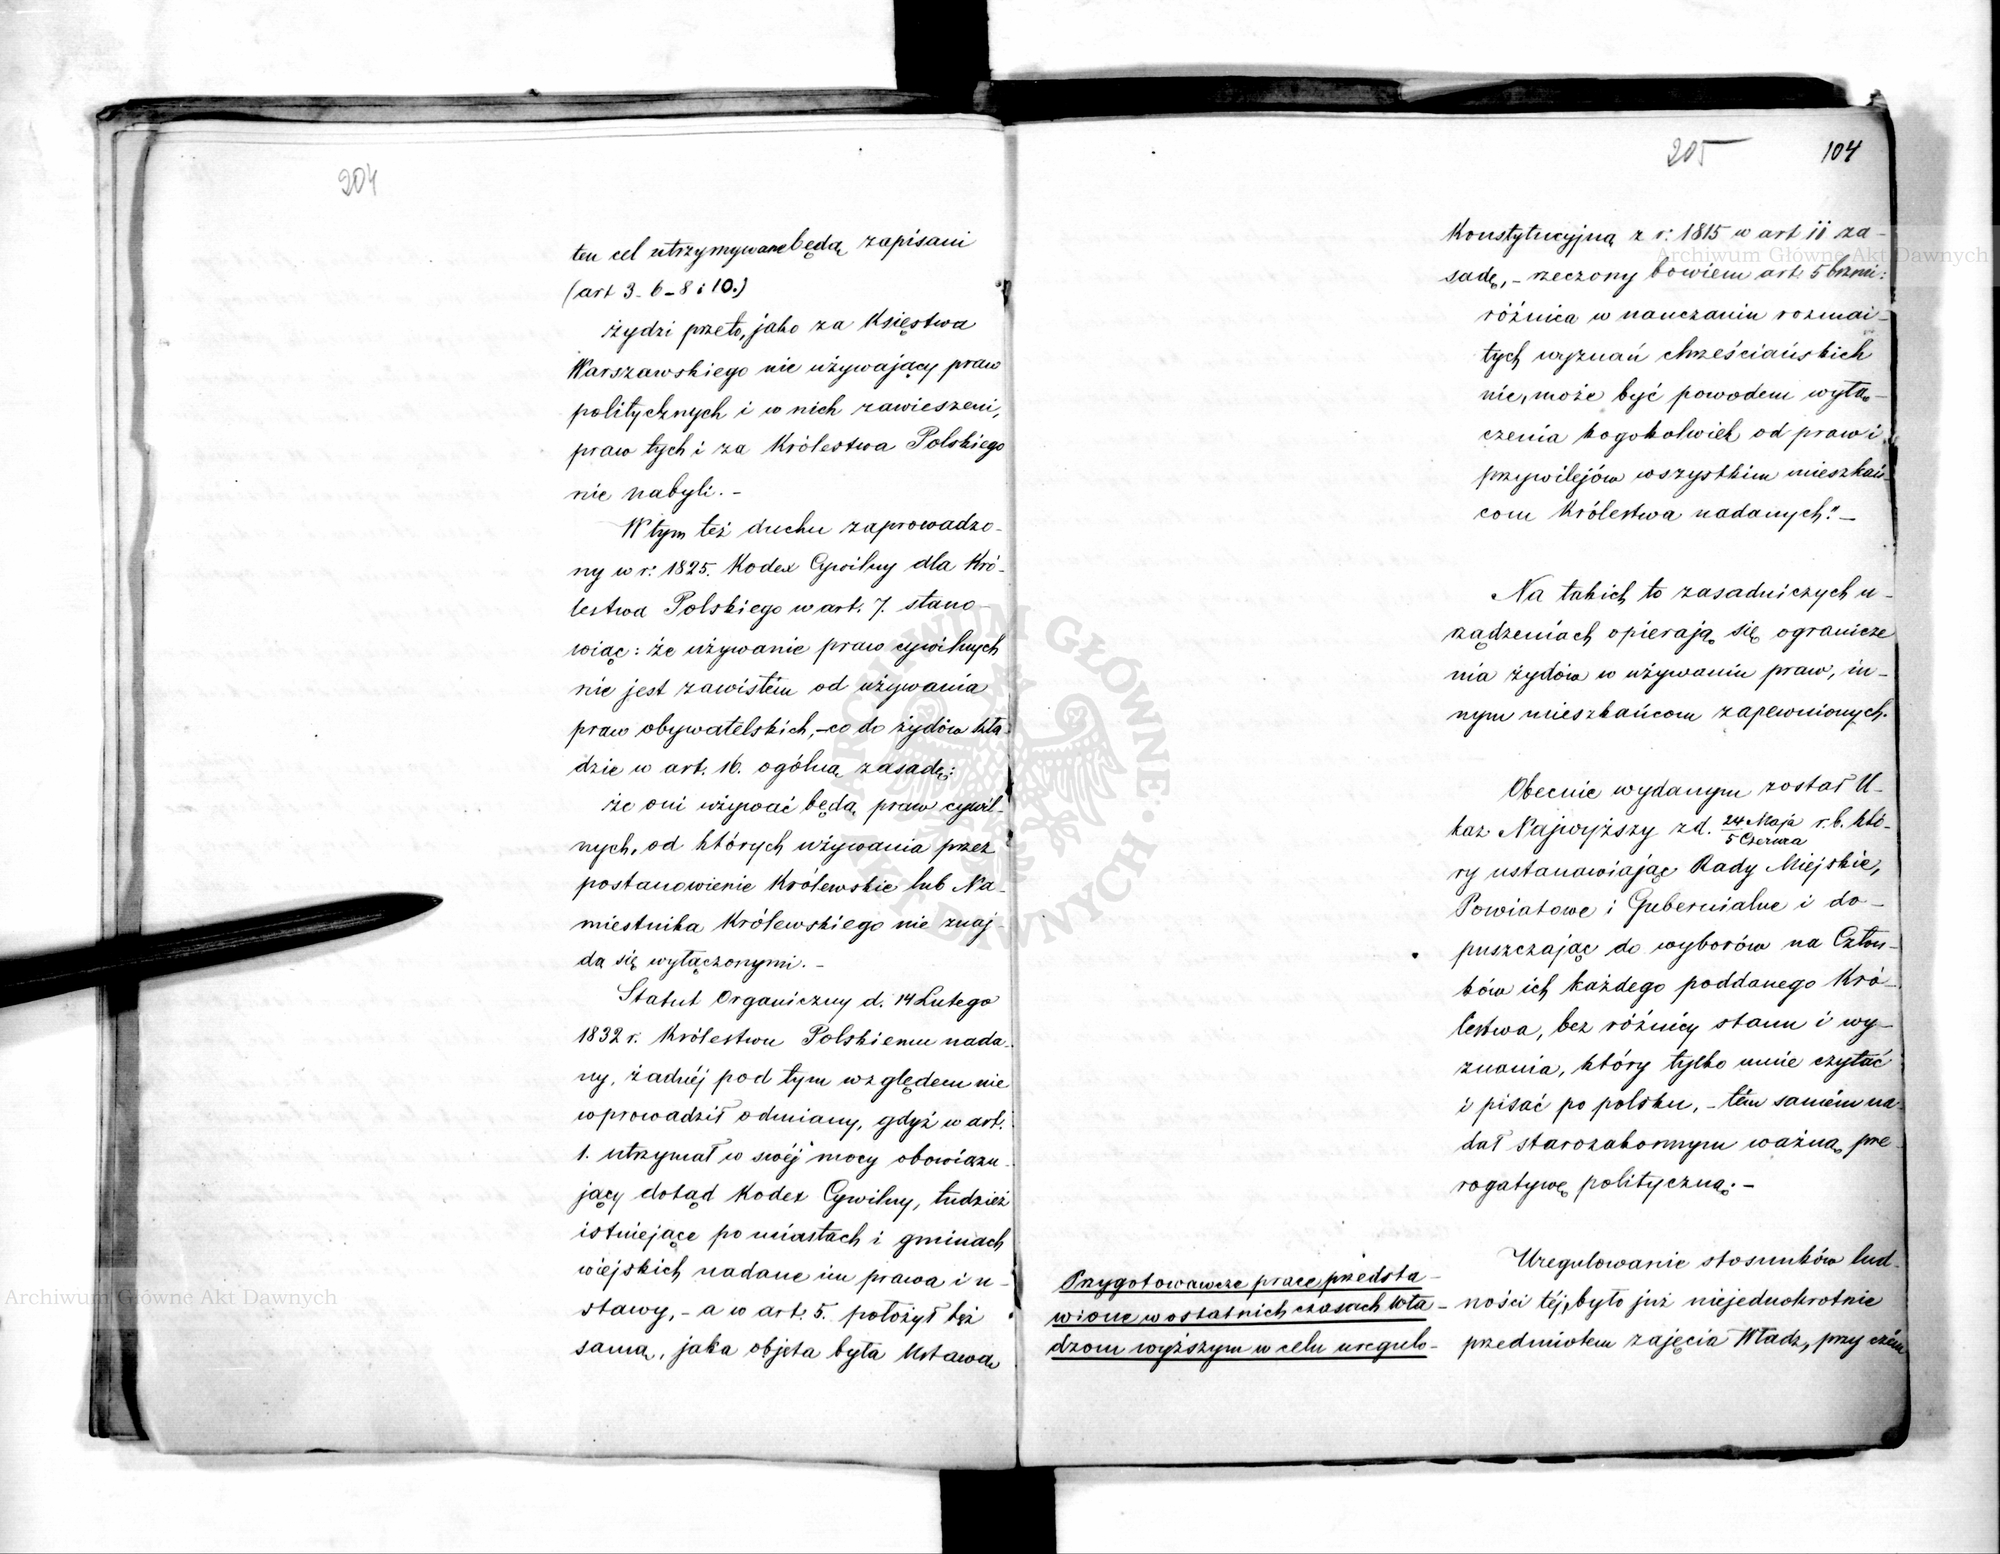 204
ten cel utrzymywane będą zapisani
(art 3 - 6 - 8 i 10.)
żydzi przeto, jako za Księstwa
Warszawskiego nie używający praw
politycznych i w nich zawieszeni,
praw tych i za Królestwa Polskiego
nie nabyli. -
W tym też duchu zaprowadzo-
ny w r: 1825. Kodex Cywilny dla Kró-
lestwa Polskiego w art. 7. stano-
wiąc: że używanie praw cywilnych
nie jest zawisłém od używania
praw obywatelskich, - co do żydów kła-
dzie w art. 16. ogólną zasadę:
że oni używać będą praw cywil-
nych, od których używania przez
postanowienie Królewskie lub Na-
miestnika Królewskiego nie znaj-
dą się wyłączonymi. -
Statut Organiczny d. 14 Lutego
1832 r. Królestwu Polskiemu nada-
ny, żadnéj pod tym względem nie
wprowadził odmiany, gdyż w art.
1. utrzymał w swéj mocy obowiązu-
jący dotąd Kodex Cywilny, tudzież
istniejące po miastach i gminach
wiejskich nadane im prawa i u-
stawy, - a w art. 5. położył też
samą, jaka objęta była Ustawą
205
104
Konstytucyjną z r: 1815 w art 11 za-
sadę, - rzeczony bowiem art. 5 brzmi:
różnica w nauczaniu rozmai-
tych wyznań chrześciańskich
nie może być powodem wyłą-
czenia kogokolwiek od praw i
przywilejów wszystkim mieszkań-
com Królestwa nadanych." -
Na takich to zasadniczych u-
rządzeniach opierają się ogranicze
nia żydów w używaniu praw, in-
nym mieszkańcom zapewnionych.
Obecnie wydanym został U-
kaz Najwyższy z d. 24 Maja / 5 Czerwca r. b. któ-
ry ustanawiając Rady Miejskie,
Powiatowe i Gubernialne i do-
puszczając do wyborów na Człon-
ków ich każdego poddanego Kró-
lestwa, bez różnicy stanu i wy-
znania, który tylko umie czytać
i pisać po polsku, - tém samém na-
dał starozakonnym ważną pre-
rogatywę polityczną. -
Uregulowanie stosunków lud-
ności téj, było już niejednokrotnie
przedmiotem zajęcia Władz, przy czém
Przygotowawcze prace przedsta-
wione w ostatnich czasach Wła-
dzom wyższym w celu uregulo-
Archiwum Główne Akt Dawnych
Archiwum Główne Akt Dawnych
ARCHIWUM GŁÓWNE AKT DAWNYCH